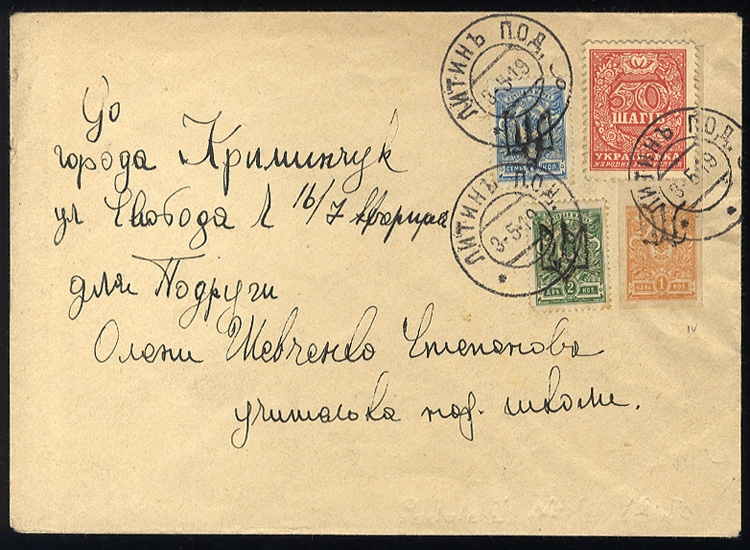 ЛИТИНЪ ПОД.
3-5-19
50
ШАГІВ
УКРАЇНСЬКА
НАРОДНЯ
ЛИТИНЪ ПОД.
3-5-19
ЛИТИНЪ ПОД.
3-5-19
СЕМЬ КОП.
2
ДВѢ КОП.
1
ОДНА КОП.
До
города Криминчук
ул Свобода 16/7 квартира
для Подруги
Олени Шевченко Степанова
учителька нар. школи.
IV